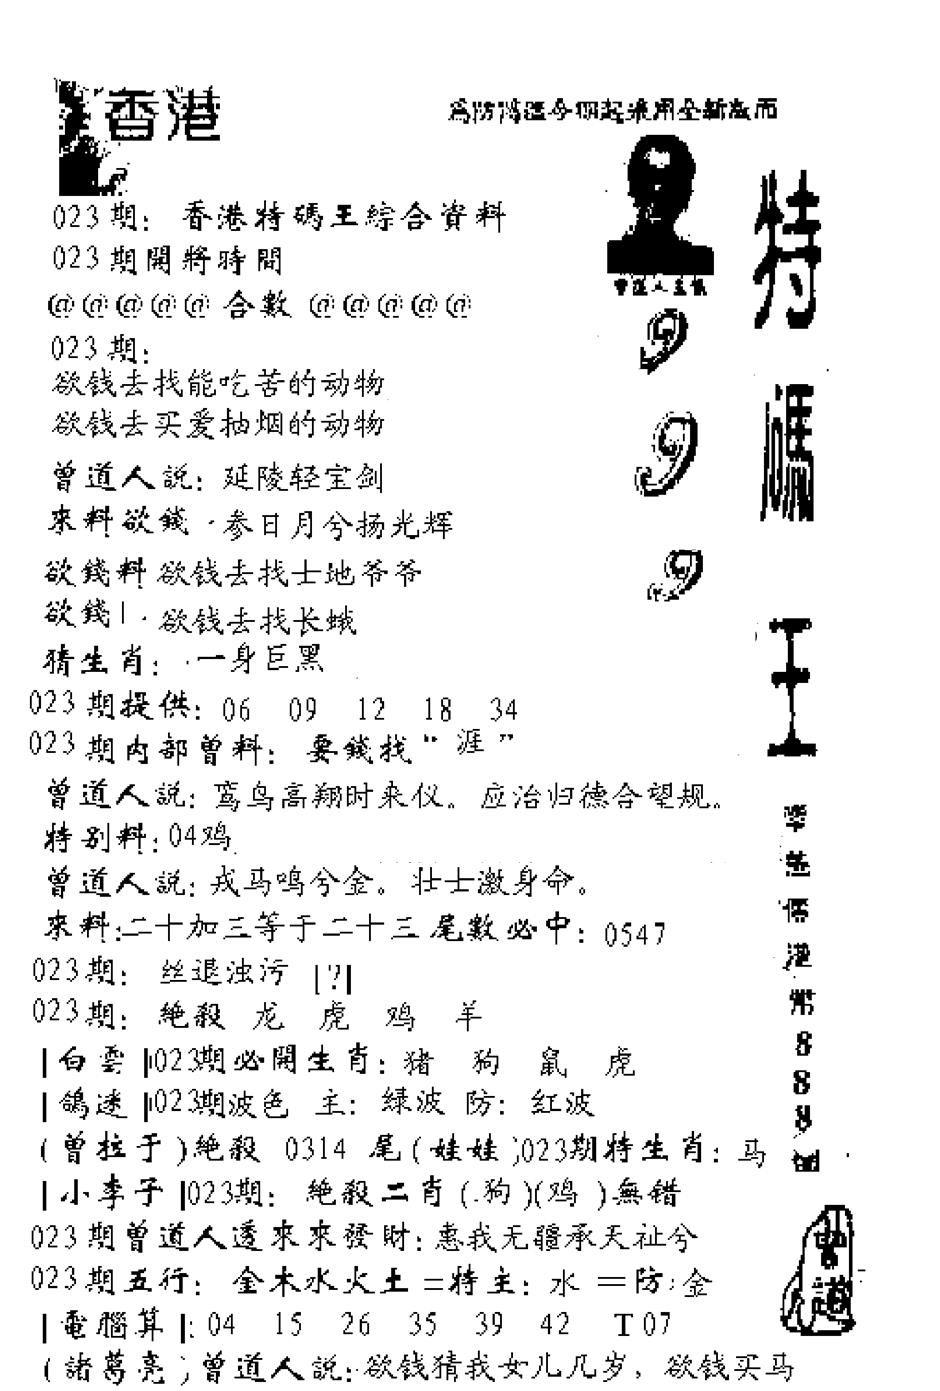 香港
為防濫今期起乘用全新版面
023期：香港特碼王綜合資料
023期開將時間
@@@@@合數@@@@@
023期：
欲钱去找能吃苦的动物
欲钱去买爱抽烟的动物
曾道人說：延陵轻宝剑
來料欲錢·参日月兮扬光辉
欲錢料 欲钱去找士地爷爷
欲錢|·欲钱去找长蛾
猜生肖：·一身巨黑
023期提供：06 09 12 18 34
023期内部曾料：要錢找“涯”
曾道人說：鸾鸟高翔时来仪。应治归德合望规。
特别料：04鸡
曾道人說：戎马鸣兮金。壮士激身命。
來料：二十加三等于二十三尾數必中：0547
023期：丝退浊污 |?|
023期：絶殺 龙 虎 鸡 羊
|白雲|023期必開生肖：猪 狗 鼠 虎
|鴿迷|023期波色 主：緑波 防：红波
(曾拉于)絶殺 0314 尾(娃娃)023期特生肖：马
|小李子|023期：絶殺二肖(.狗)(鸡)無错
023期曾道人透來來發財：惠我无疆承天祉兮
023期五行：金木水火土=特主：水=防：金
|電腦算|：04 15 26 35 39 42 T07
(諸葛亮)曾道人說：欲钱猜我女儿几岁，欲钱买马
999
特碼王
港幣888
曾道